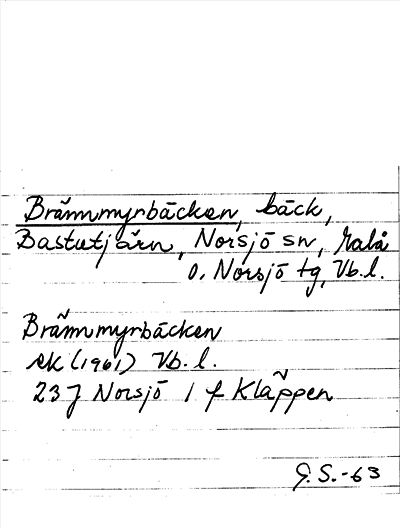 Brännmyrbäcken, bäck,
Bastutjärn, Norsjö sn, Malå
o. Norsjö tg, Vb.l.
Brännmyrbäcken
ek (1961) Vb.l.
23 J Norsjö 1 f Kläppen
G.S.-63